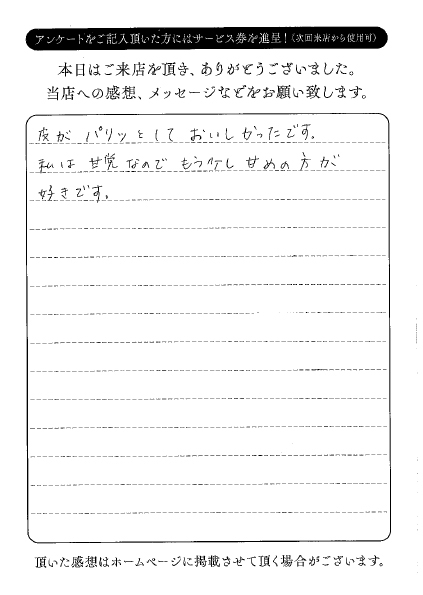 アンケートをご記入頂いた方にはサービス券を進呈！（次回来店から使用可）
本日はご来店を頂き、ありがとうございました。
当店への感想、メッセージなどをお願い致します。
皮が パリッとして おいしかったです。
私は 甘党なので もう少し 甘めの方が
好きです。
頂いた感想はホームページに掲載させて頂く場合がございます。